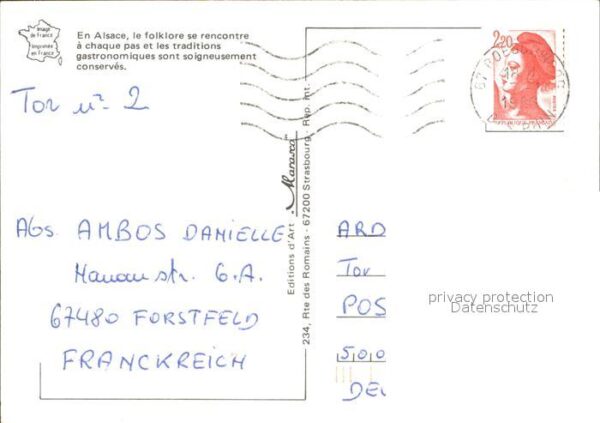 Image
de France
Imprimée
en France
En Alsace, le folklore se rencontre
à chaque pas et les traditions
gastronomiques sont soigneusement
conservés.
2,20
Tor nr 2
Editions d'Art - Marasco
234, Rte des Romains - 67200 Strasbourg - Rep. int.
Abs. AMBOS DANIELLE
Hanaustr. 6.A.
67480 FORSTFELD
FRANCKREICH
ARD
Tor
POS
500
DEU
privacy protection
Datenschutz